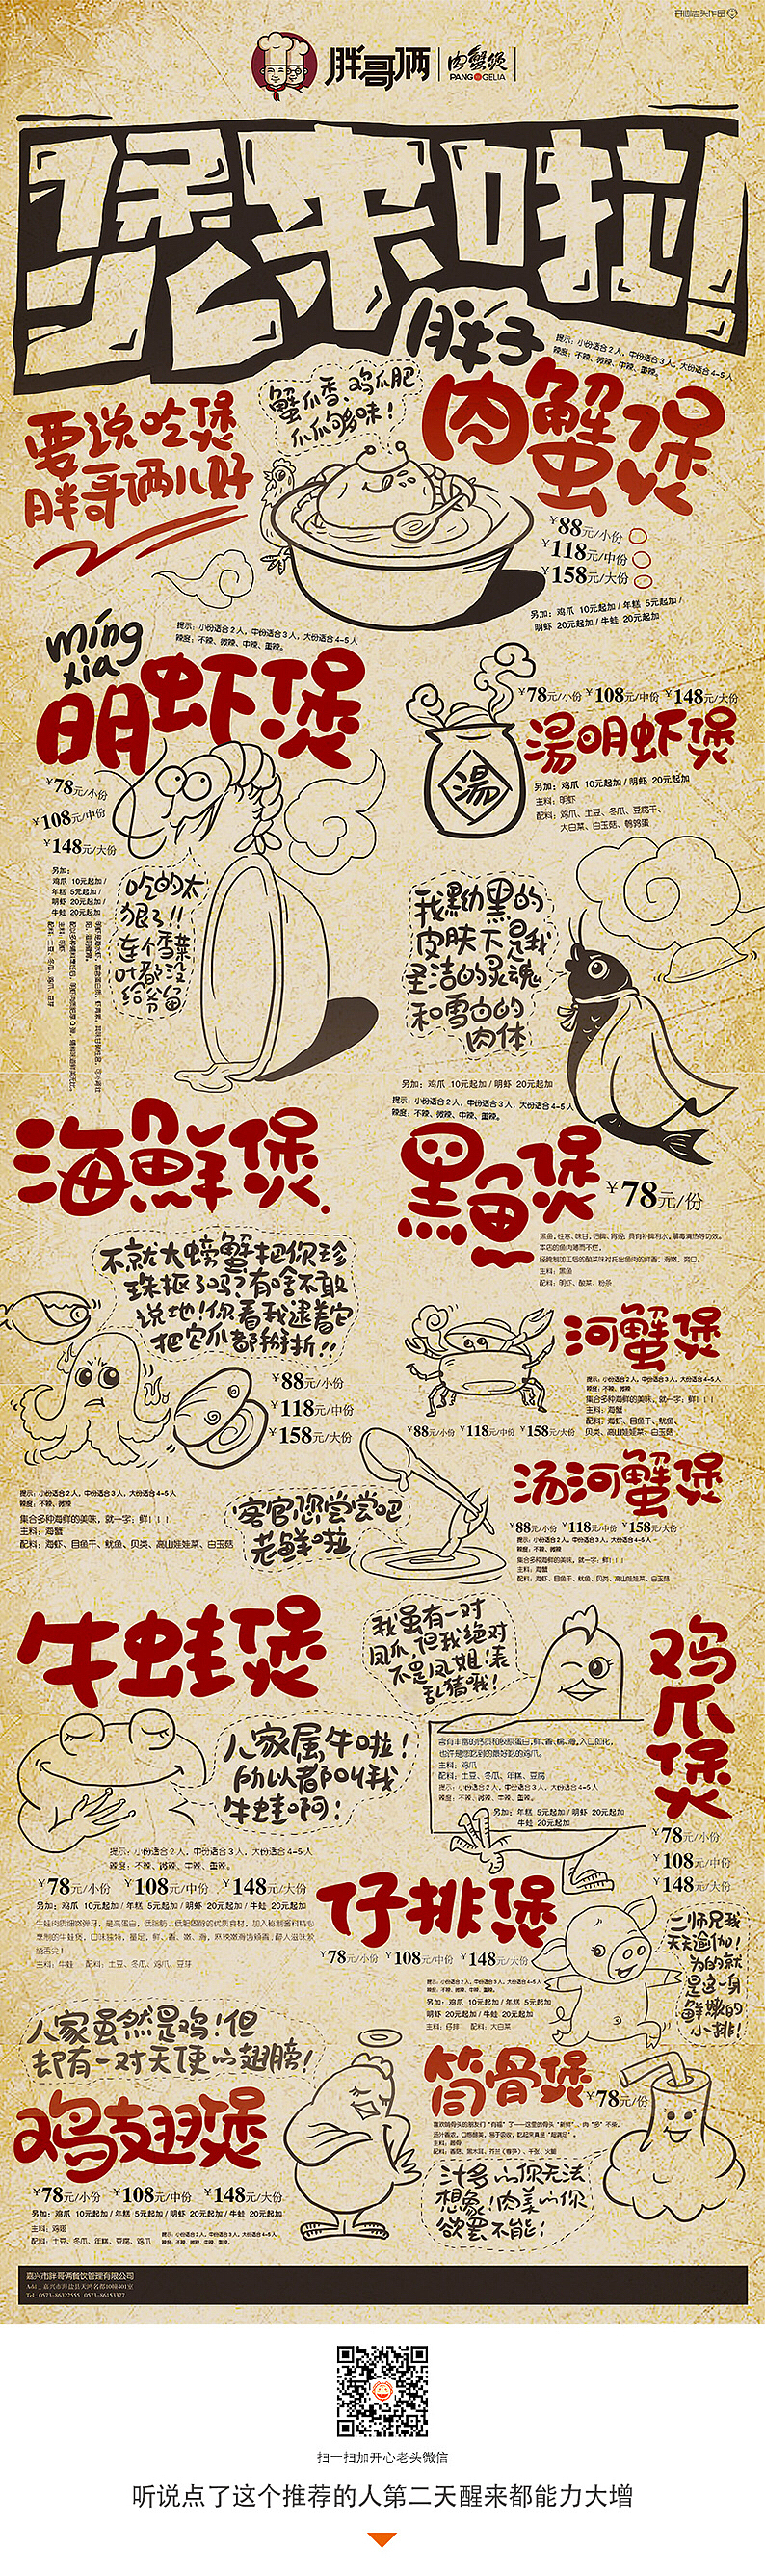 胖哥俩
肉蟹煲
PANG GELIA
煲来啦!
胖子
肉蟹煲
提示：小份适合2人，中份适合3人，大份适合4-5人
辣度：不辣、微辣、中辣、重辣。
蟹爪香、鸡爪肥
爪爪够味！
要说吃煲
胖哥俩儿好
¥88元/小份
¥118元/中份
¥158元/大份
另加：鸡爪 10元起加 / 年糕 5元起加 /
明虾 20元起加 / 牛蛙 20元起加
míng
xia
提示：小份适合2人，中份适合3人，大份适合4-5人
辣度：不辣、微辣、中辣、重辣。
明虾煲
¥78元/小份
¥108元/中份
¥148元/大份
另加：
鸡爪 10元起加 /
年糕 5元起加 /
明虾 20元起加 /
牛蛙 20元起加
主料：明虾
配料：土豆、冬瓜、鸡爪、豆芽
吃的太
狠了!!
连个香菜
叶都没
给爷留
¥78元/小份 ¥108元/中份 ¥148元/大份
湯
湯明虾煲
另加：鸡爪 10元起加 / 明虾 20元起加
主料：明虾
配料：鸡爪、土豆、冬瓜、豆腐干、
大白菜、白玉菇、鹌鹑蛋
我黝黑的
皮肤下是我
圣洁的灵魂
和雪白的
肉体
另加：鸡爪 10元起加 / 明虾 20元起加
提示：小份适合2人，中份适合3人，大份适合4-5人
辣度：不辣、微辣、中辣、重辣。
海鮮煲
黑鱼煲
¥78元/份
黑鱼，性寒、味甘，归脾、胃经，具有补脾利水，解毒清热等功效。
本店的鱼肉薄而不烂，
经腌制加工后的酸菜味衬托出鱼肉的鲜香；滑嫩，爽口。
主料：黑鱼
配料：明虾、酸菜、粉条
不就大螃蟹把你珍
珠抠了吗？有啥不敢
说地！你看我逮着它
把它爪都掰折!!
¥88元/小份
¥118元/中份
¥158元/大份
提示：小份适合2人，中份适合3人，大份适合4-5人
辣度：不辣、微辣
集合多种海鲜的美味，就一字：鲜！！！
主料：海蟹
配料：海虾、目鱼干、鱿鱼、贝类、高山娃娃菜、白玉菇
河蟹煲
提示：小份适合2人，中份适合3人，大份适合4-5人
辣度：不辣、微辣
集合多种海鲜的美味，就一字：鲜！！！
主料：海蟹
配料：海虾、目鱼干、鱿鱼、
贝类、高山娃娃菜、白玉菇
¥88元/小份 ¥118元/中份 ¥158元/大份
客官您尝尝吧
老鲜啦
汤河蟹煲
¥88元/小份 ¥118元/中份 ¥158元/大份
提示：小份适合2人，中份适合3人，大份适合4-5人
辣度：不辣、微辣
集合多种海鲜的美味，就一字：鲜！！！
主料：海蟹
配料：海虾、目鱼干、鱿鱼、贝类、高山娃娃菜、白玉菇
牛蛙煲
人家属牛啦！
所以人都叫我
牛蛙啊！
提示：小份适合2人，中份适合3人，大份适合4-5人
辣度：不辣、微辣、中辣、重辣。
¥78元/小份 ¥108元/中份 ¥148元/大份
另加：鸡爪 10元起加 / 年糕 5元起加 / 明虾 20元起加 / 牛蛙 20元起加
主料：牛蛙 配料：土豆、冬瓜、鸡爪、豆芽
我虽有一对
凤爪，但我绝对
不是凤姐！表
乱猜哦！
鸡爪煲
主料：鸡爪
配料：土豆、冬瓜、年糕、豆腐
提示：小份适合2人，中份适合3人，大份适合4-5人
辣度：不辣、微辣、中辣、重辣。
另加：年糕 5元起加 / 明虾 20元起加
牛蛙 20元起加
¥78元/小份
¥108元/中份
¥148元/大份
仔排煲
¥78元/小份 ¥108元/中份 ¥148元/大份
提示：小份适合2人，中份适合3人，大份适合4-5人
辣度：不辣、微辣、中辣、重辣。
另加：鸡爪 10元起加 / 年糕 5元起加
明虾 20元起加 / 牛蛙 20元起加
主料：仔排 配料：大白菜
二师兄我
天天瑜伽！
为的就
是这一身
鲜嫩的
小排！
人家虽然是鸡！但
却有一对天使的翅膀！
鸡翅煲
¥78元/小份 ¥108元/中份 ¥148元/大份
另加：鸡爪 10元起加 / 年糕 5元起加 / 明虾 20元起加 / 牛蛙 20元起加
主料：鸡翅
配料：土豆、冬瓜、年糕、豆腐、鸡爪
提示：小份适合2人，中份适合3人，大份适合4-5人
辣度：不辣、微辣、中辣、重辣。
筒骨煲
¥78元/份
汁多的你无法
想象！肉美的你
欲罢不能！
嘉兴市胖哥俩餐饮管理有限公司
扫一扫加开心老头微信
听说点了这个推荐的人第二天醒来都能力大增